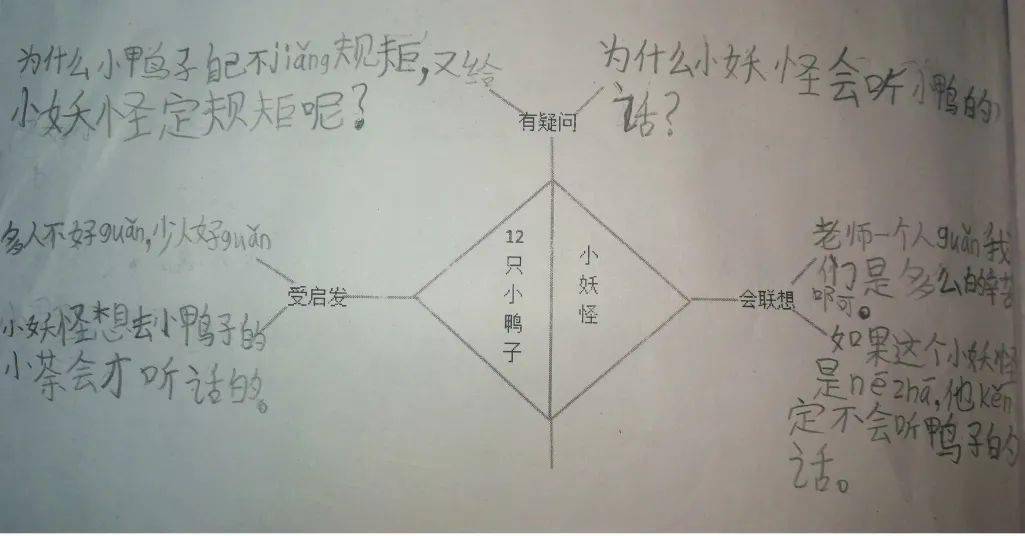 为什么小鸭子自己不jiǎng规矩，又给
小妖怪定规矩呢？
为什么小妖怪会听小鸭的
话？
有疑问
多人不好guǎn，少人好guǎn
小妖怪想去小鸭子的
小茶会才听话的。
受启发
12只小鸭子
小妖怪
会联想
老师一个人guǎn我
们是多么的辛苦
啊。
如果这个小妖怪
是né zhā，他kěn
定不会听鸭子的
话。